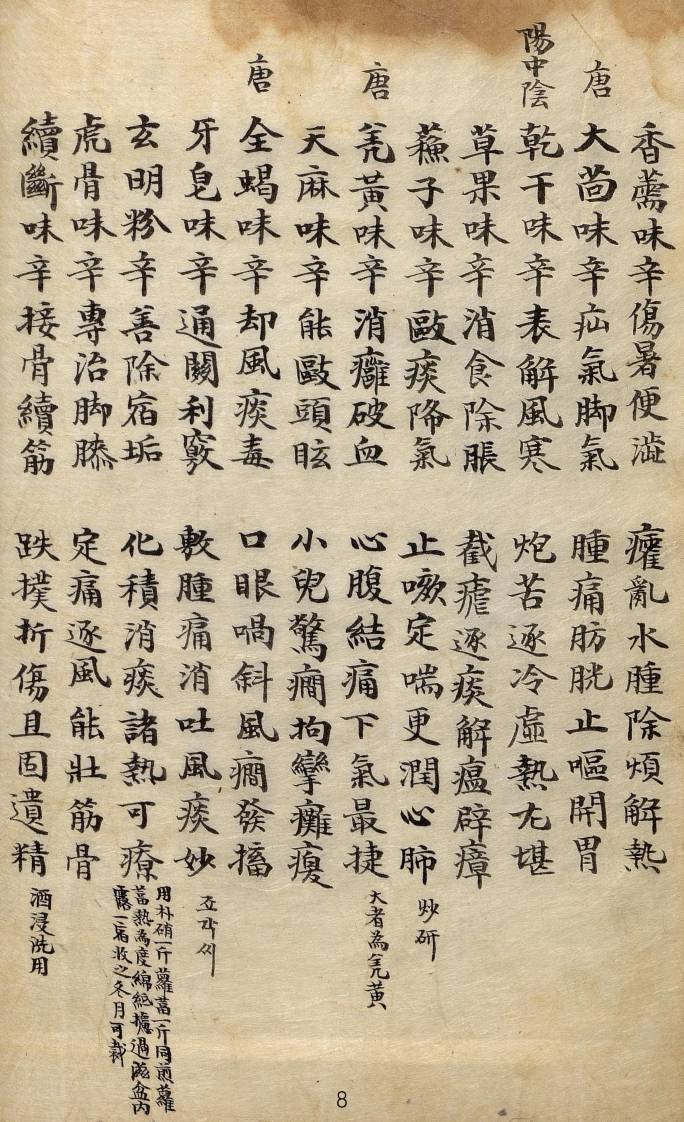 香薷味辛傷暑便澁 癨亂水腫除煩解熱
唐
大茴味辛疝氣脚氣 腫痛肪胱止嘔開胃
陽中陰
乾干味辛表解風寒 炮苦逐冷虛熱尢堪
草果味辛消食除脹 截瘧逐痰解瘟辟瘴
蘓子味辛敺痰降氣 止嗽定喘更潤心肺
炒研
唐
芫黃味辛消癰破血 心腹結痛下氣最捷
大者為芫黃
天麻味辛能敺頭眩 小兒驚癎拘攣癱瘓
唐
全蝎味辛却風痰毒 口眼喎斜風癎發搐
牙皂味辛通關利竅 敷腫痛消吐風痰妙
조각씨
玄明粉辛善除宿垢 化積消痰諸熱可療
用朴硝一斤蘿葍一斤同煎蘿
葍熱為度綿絕攄過 盆內
露一宿收之冬月可裁
虎骨味辛專治脚膝 定痛逐風能壯筋骨
續斷味辛接骨續筋 跌撲折傷且固遺精
酒浸洗用
8